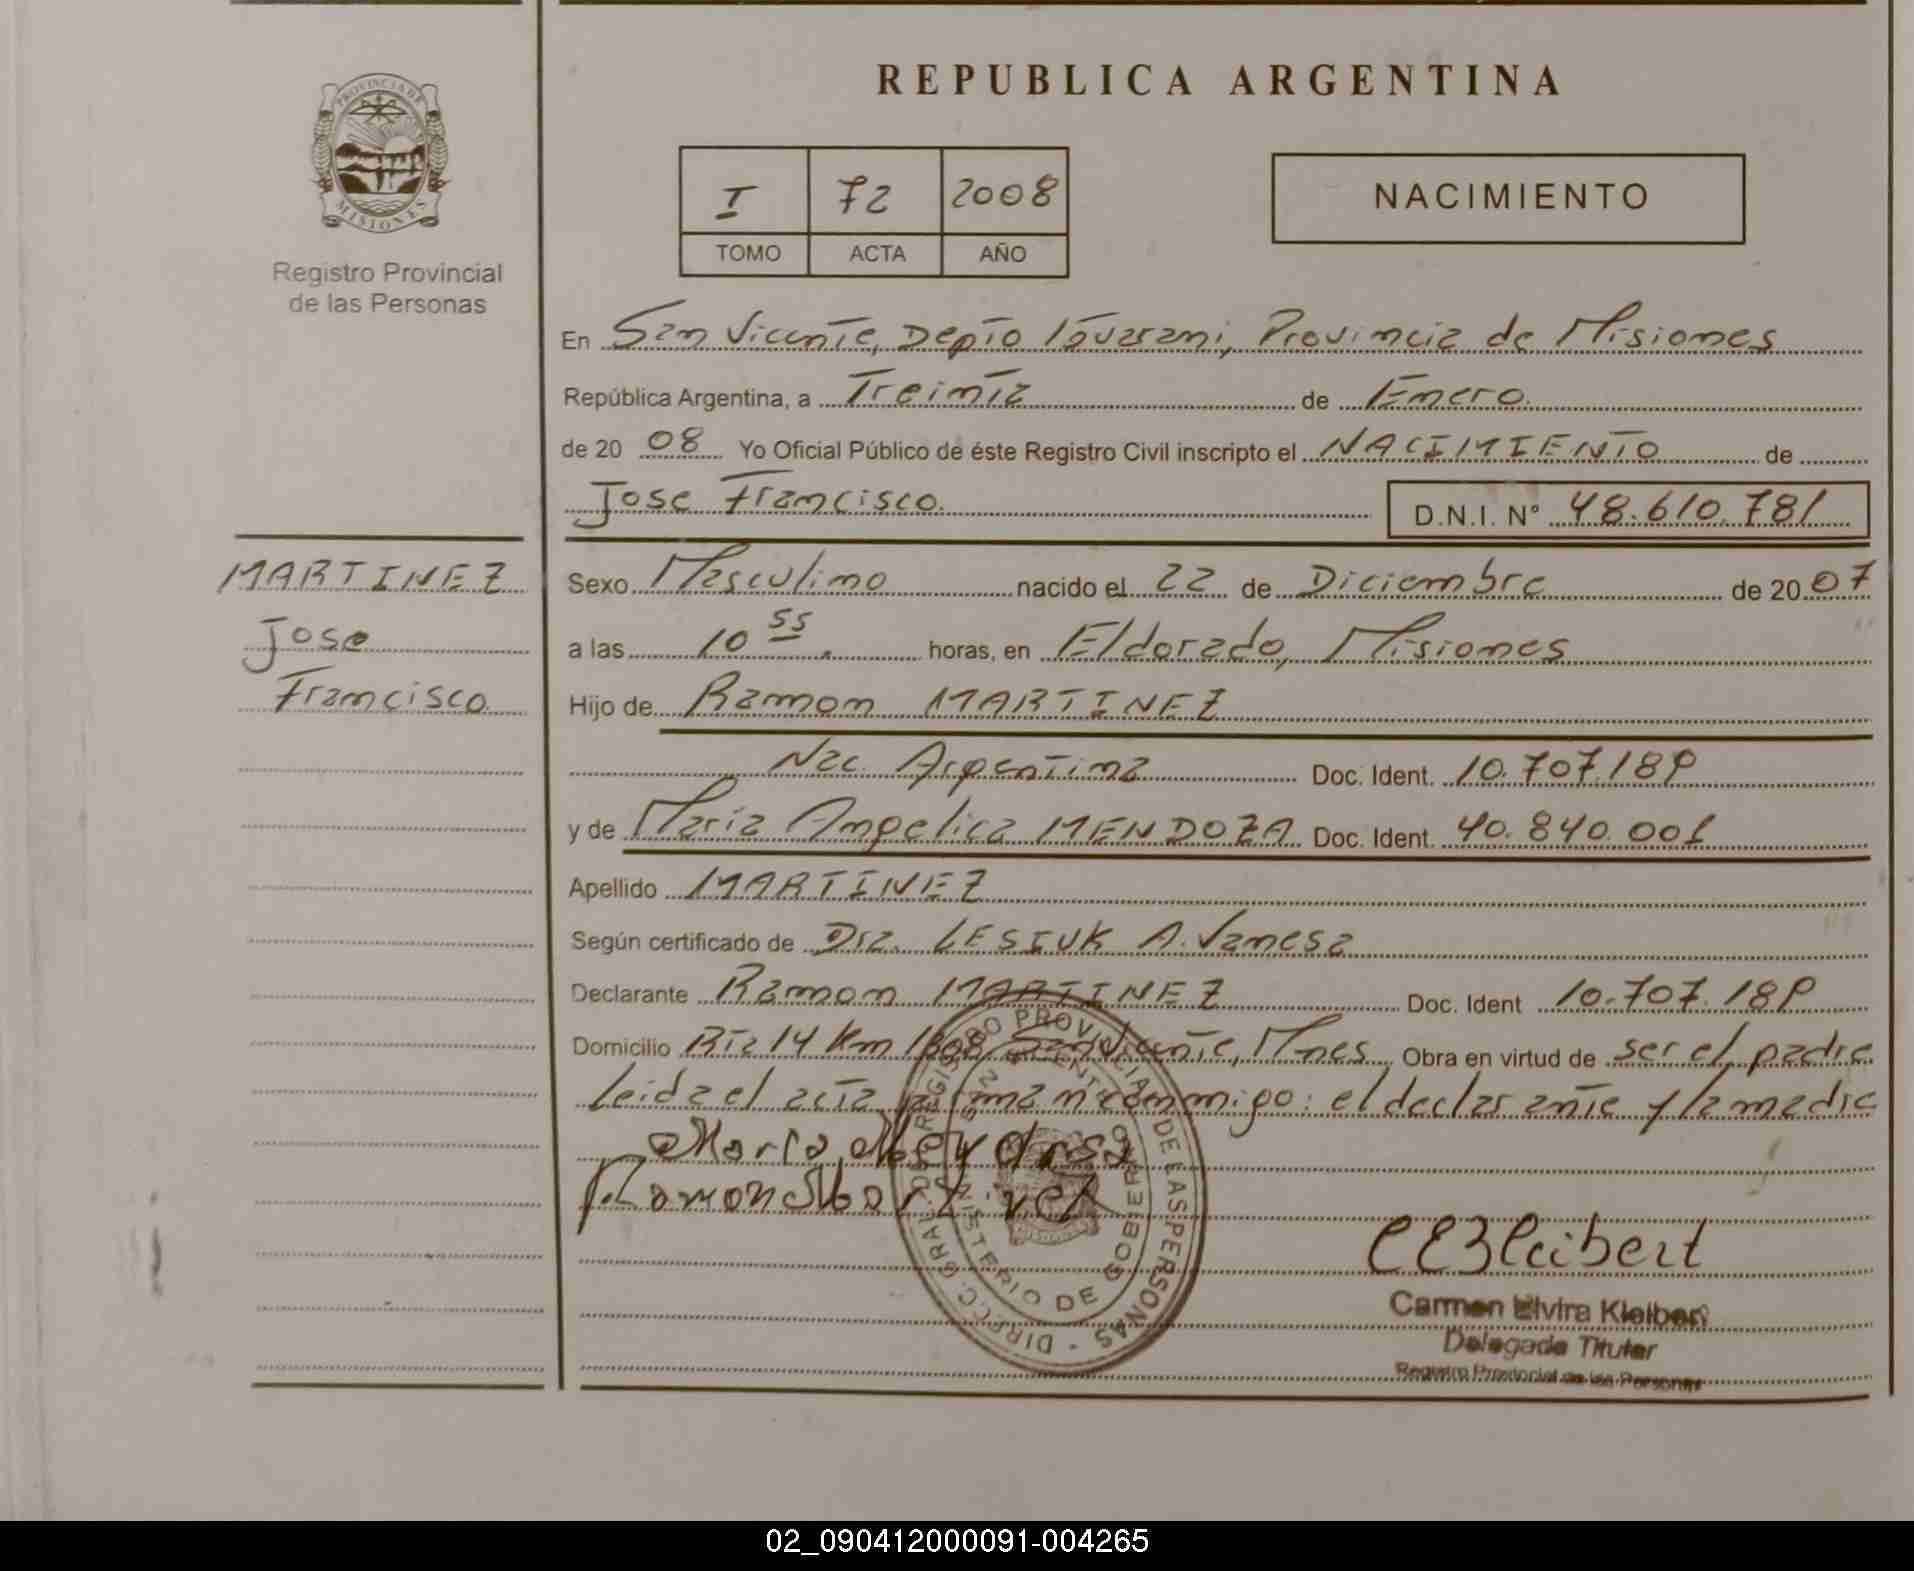 REPUBLICA ARGENTINA
PROVINCIA DE
MISIONES
Registro Provincial
de las Personas
I 72 2008
TOMO ACTA AÑO
NACIMIENTO
En San Vicente, Depto Guarani, Provincia de Misiones
República Argentina, a Treinta de Enero.
de 20 08 Yo Oficial Público de éste Registro Civil inscripto el NACIMIENTO de
Jose Francisco. D.N.I. N° 48.610.781
MARTINEZ
Jose
Francisco
Sexo Masculino nacido el 22 de Diciembre de 20 07
a las 10 55. horas, en Eldorado, Misiones
Hijo de Ramon MARTINEZ
Nac. Argentina Doc. Ident. 10.707.189
y de Maria Angelica MENDOZA Doc. Ident. 40.840.001
Apellido MARTINEZ
Según certificado de Dra. LESIUK A. Vanesa
Declarante Ramon MARTINEZ Doc. Ident 10.707.189
Domicilio Rta 14 Km San Vicente, Mnes Obra en virtud de ser el padre
Leida el acta, firman conmigo: el declarante y la madre
Ramon
DIRECC. GRAL. DEL REGISTRO PROVINCIAL DE LAS PERSONAS
MINISTERIO DE GOBIERNO
SAN VICENTE
Carmen Elvira Kleibert
Delegada Titular
Registro Provincial de las Personas
02_090412000091-004265